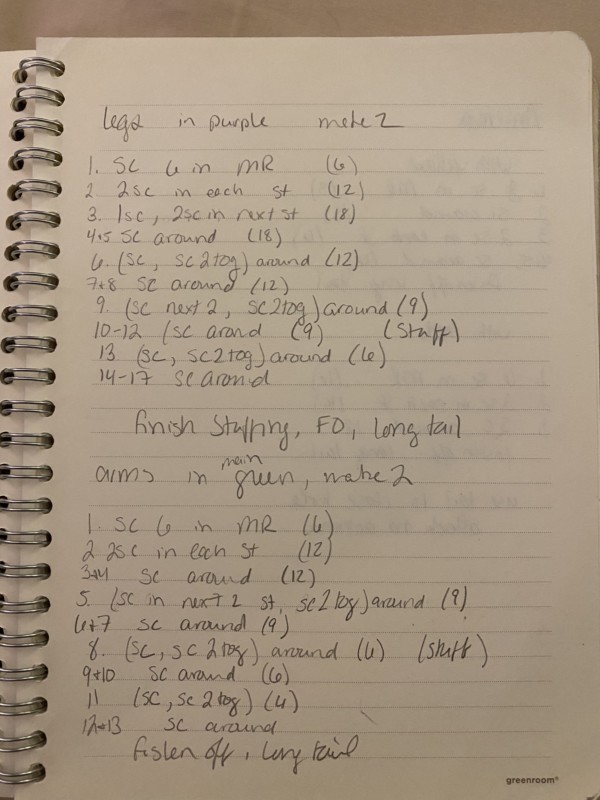 legs in purple make 2
1. SC 6 in MR (6)
2 2sc in each st (12)
3. 1sc, 2sc in next st (18)
4+5 SC around (18)
6. (SC, SC2tog) around (12)
7+8 SC around (12)
9. (SC next 2, SC2tog) around (9)
10-12 (SC arond (9) (Stuff)
13 (SC, SC2tog) around (6)
14-17 SC around
finish Stuffing, FO, Long tail
main
arms in green, make 2
1. SC 6 in MR (6)
2 2sc in each st (12)
3+4 SC around (12)
5. (SC in next 2 st, SC2tog) around (9)
6+7 SC around (9)
8. (SC, SC2tog) around (6) (stuff)
9+10 SC around (6)
11 (SC, SC2tog) (4)
12-13 SC around
fasten off, long tail
greenroom®